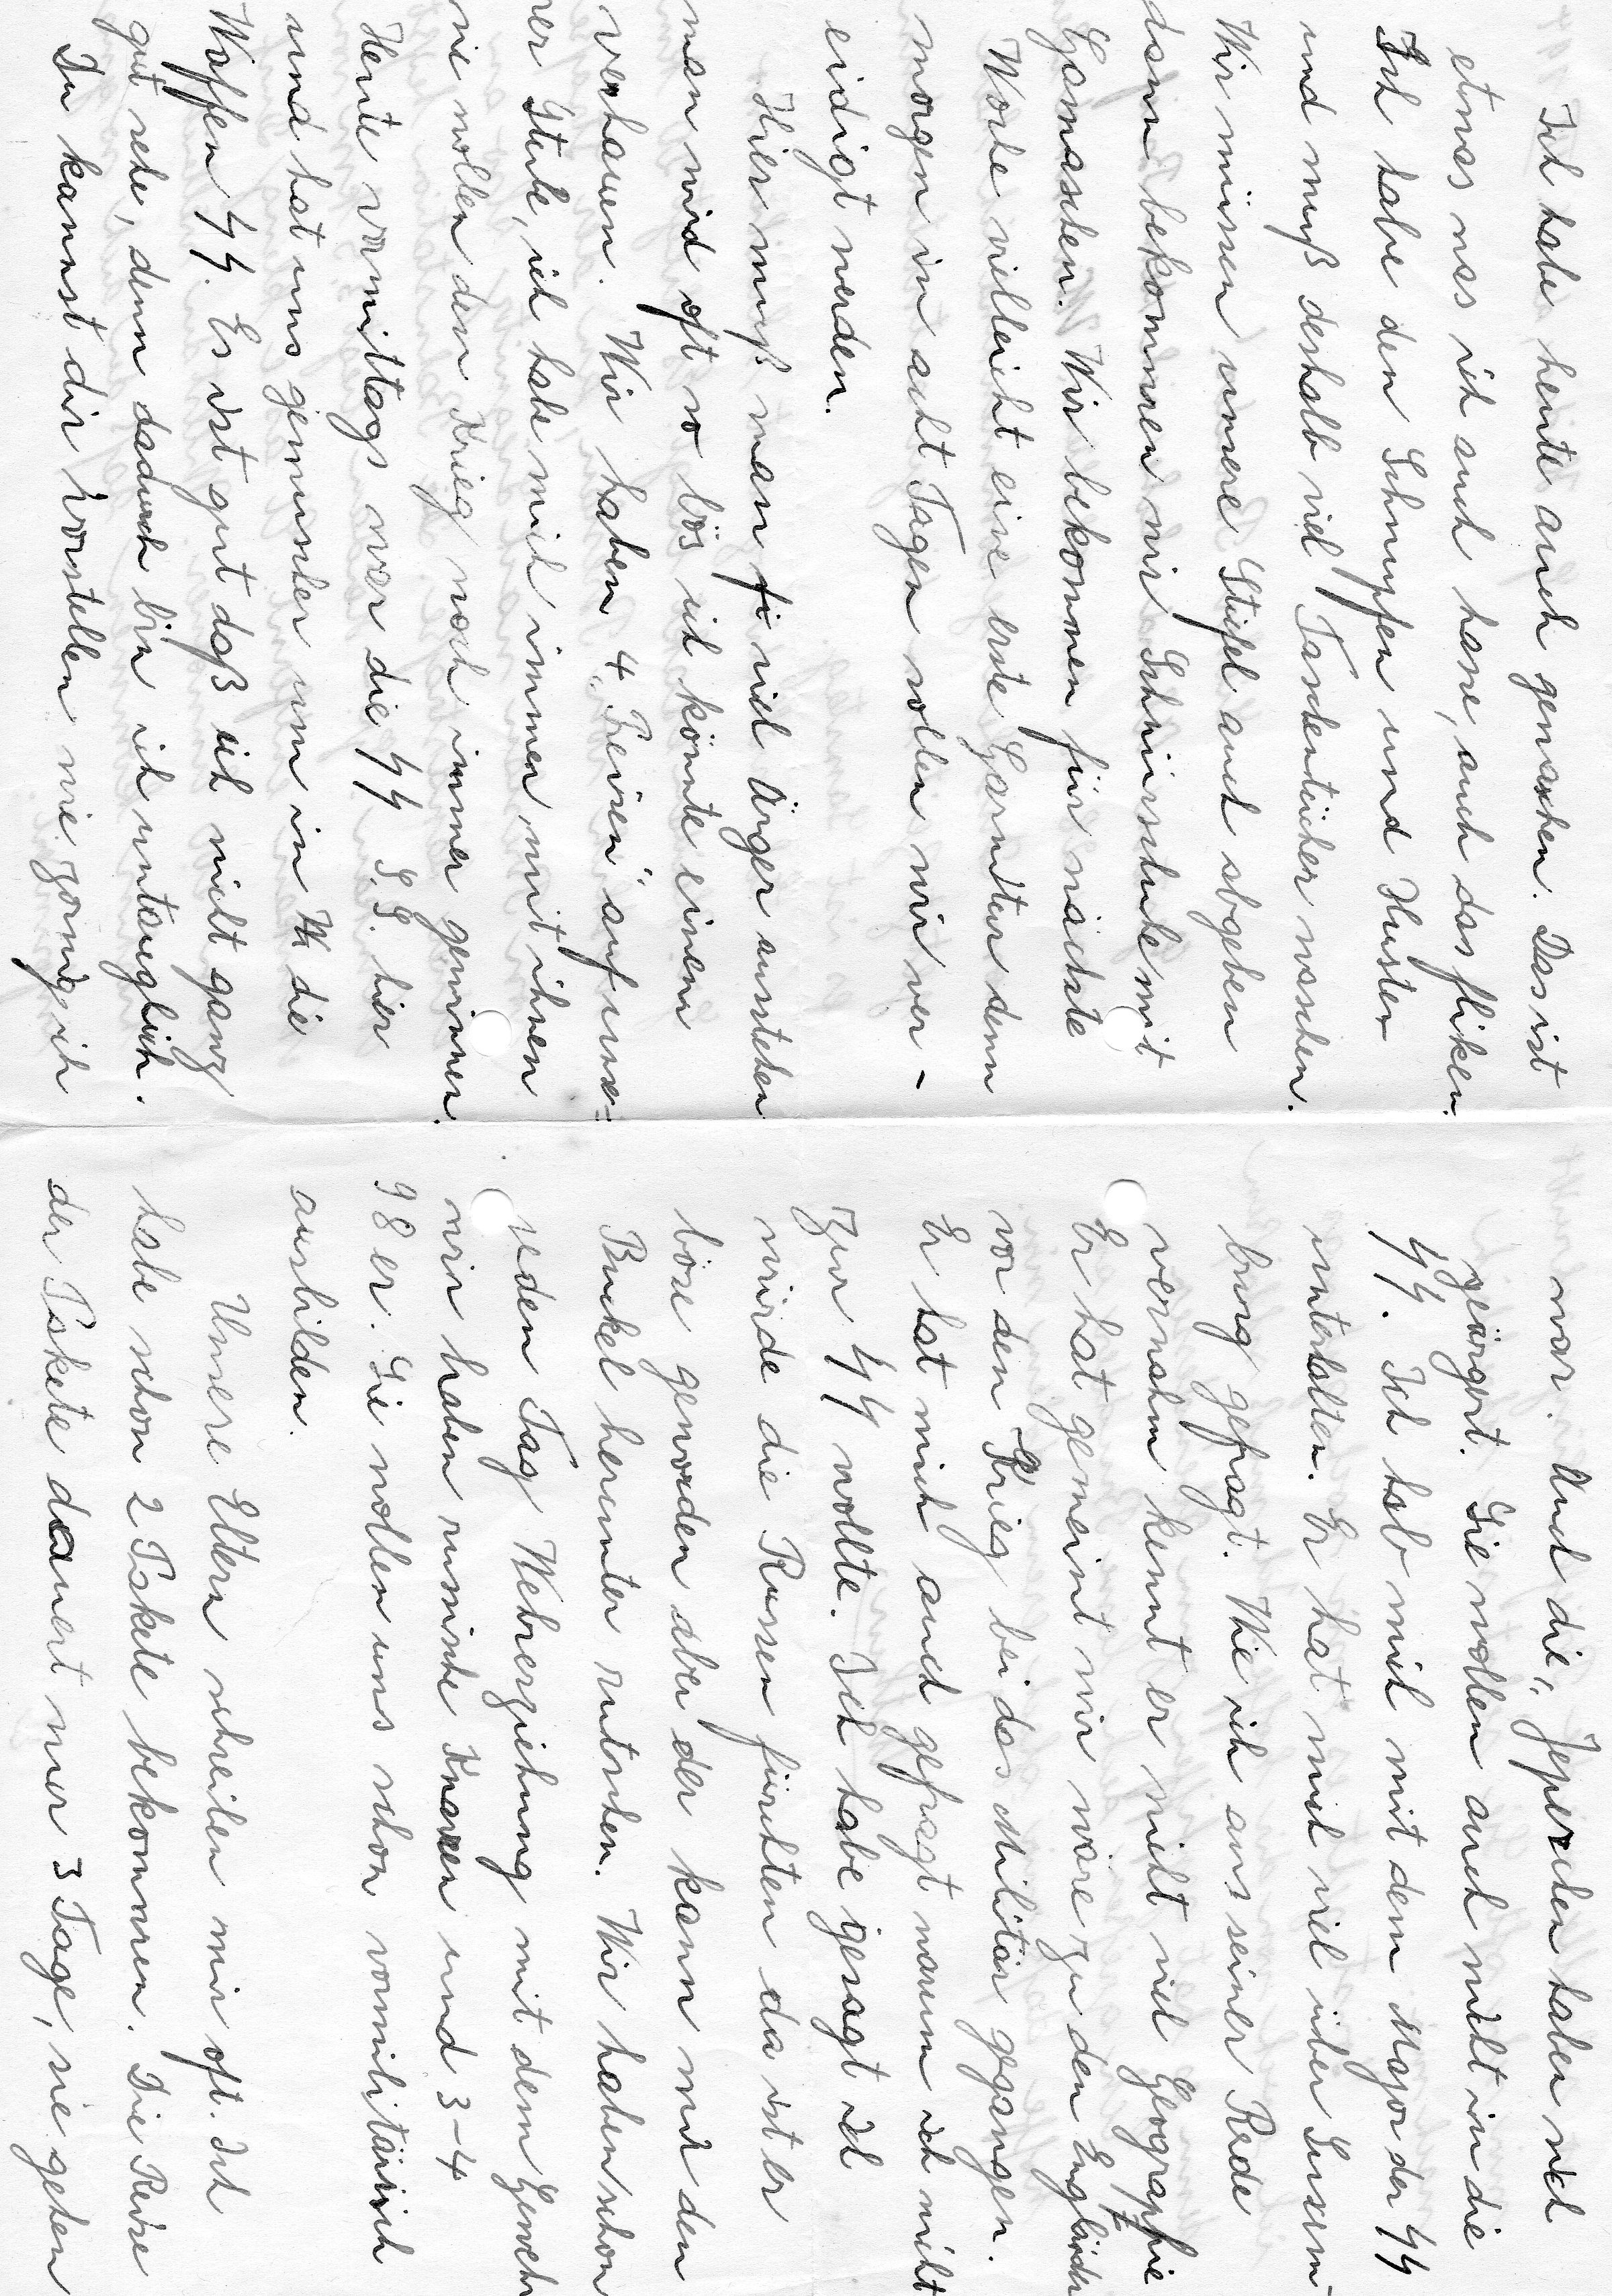 Ich habe heute auch gewaschen. Das ist
etwas was ich auch hasse, auch das fliken.
Ich habe den Schnupfen und Husten
und muß deshalb viel Taschentücher waschen.
Wir müssen unsere Stiefel auch abgeben
dann bekommen wir Schnürschuhe mit
Gamaschen. Wir bekommen für nächste
Woche vielleicht eine erste Garnitur denn
morgen in acht Tagen sollen wir ver-
eidigt werden.
Hier muß man viel Ärger ausstehen
man wird oft so bös ich könnte einen
verhauen. Wir haben 4 „Preisen“ auf unse=
rer Stube, ich habe mich immer mit ihnen
wollen den Krieg noch immer gewinnen.
Heute vormittags war die SS S.S. hier
und hat uns gemustert um in W die
Waffen SS. Es ist gut daß ich nicht ganz
gut sehe, denn dadurch bin ich untauglich.
Du kannst dir vorstellen wie zornig ich
war. Auch die „Jeperchen haben mich
geärgert. Sie wollen auch nicht in die
SS. Ich hab mich mit dem Major der SS
unterhalten. Er hat mich viel über Luxem-
burg gefragt. Wie ich aus seiner Rede
vernahm kennt er nicht viel Geographie
Er hat gemeint wir wäre zu den Engländer
vor den Krieg bei das Militär gegangen.
Er hat mich auch gefragt warum ich nicht
zur SS wollte. Ich habe gesagt ich
würde die Russen fürchten da ist er
böse geworden aber der kann mir den
Buckel herunter rutschen. Wir haben schon
jeden Tag Wehrerziehung mit dem Gewehr
wir haben russische Knarren und 3-4
98 er. Sie wollen uns schon vormilitärisch
ausbilden.
Unsere Eltern schreiben mir oft. Ich
habe schon 2 Pakete bekommen. Die Reise
der Pakete dauert nur 3 Tage, sie gehen